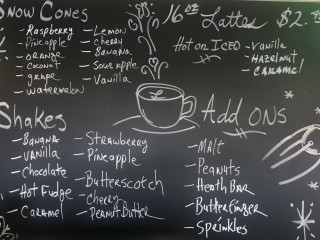 Snow Cones
- Raspberry
- Pineapple
- orange
- coconut
- grape
- watermelon
- Lemon
- cherry
- Banana
- Sour apple
- Vanilla
16 oz Latte $2.
Hot or ICED
- Vanilla
- Hazelnut
- CARAMEL
Shakes
- BANANA
- Vanilla
- Chocolate
- Hot Fudge
- Caramel
- Strawberry
- Pineapple
- Butterscotch
- cherry
- Peanut Butter
Add ONS
- Malt
- Peanuts
- Heath Bar
- Butterfinger
- Sprinkles